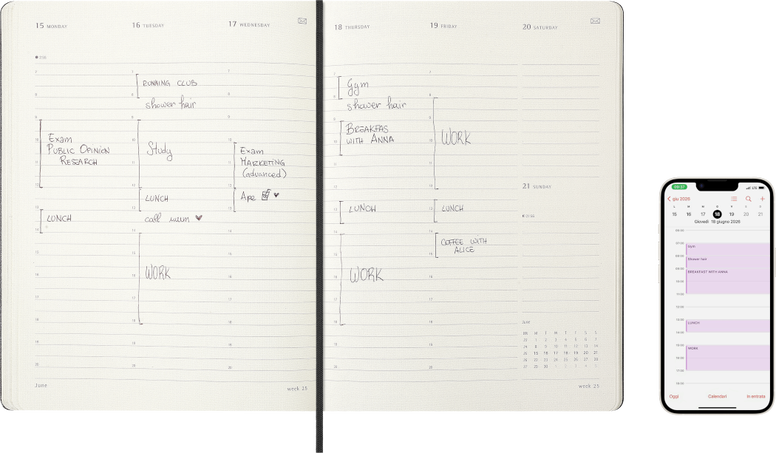 15 MONDAY
16 TUESDAY
17 WEDNESDAY
18 THURSDAY
19 FRIDAY
20 SATURDAY
RUNNING CLUB
shower hair
Exam
PUBLIC OPINION
RESEARCH
Study
Exam
MARKETING
(advanced)
LUNCH
Ape
LUNCH
call mum
WORK
Gym
shower hair
BREAKFAS
WITH ANNA
WORK
LUNCH
LUNCH
COFFEE WITH
ALICE
WORK
21 SUNDAY
June
week 25
week 25
giu 2026
15 16 17 18 19 20 21
Giovedì 18 giugno 2026
Gym
Shower hair
BREAKFAST WITH ANNA
LUNCH
WORK
Oggi
Calendari
In entrata